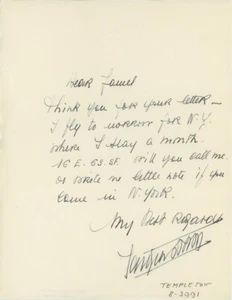 Dear
Thank you for your letter —
I fly to morrow for N.Y.
where I stay a month.
16 E. 63. St. Will you call me
or wrote me little note if you
come in N York.
My Best Regards
TEMPLETON
8-2991